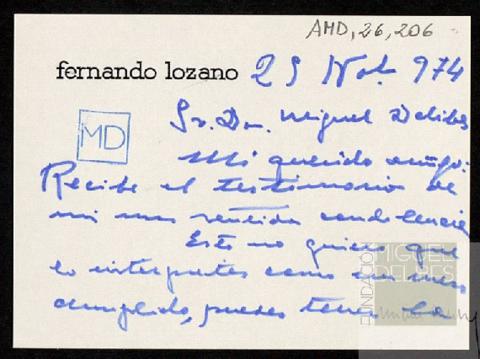 AMD, 26, 206
fernando lozano 25 Nob. 974
MD
Sr. Dn. Miguel Delibes
Mi querido amigo:
Recibe el testimonio de
mi mas sentida condolencia
Esto no quiero que
lo interpretes como un mero
cumplido, puedes tener la
FUNDACIÓN
MIGUEL
DELIBES